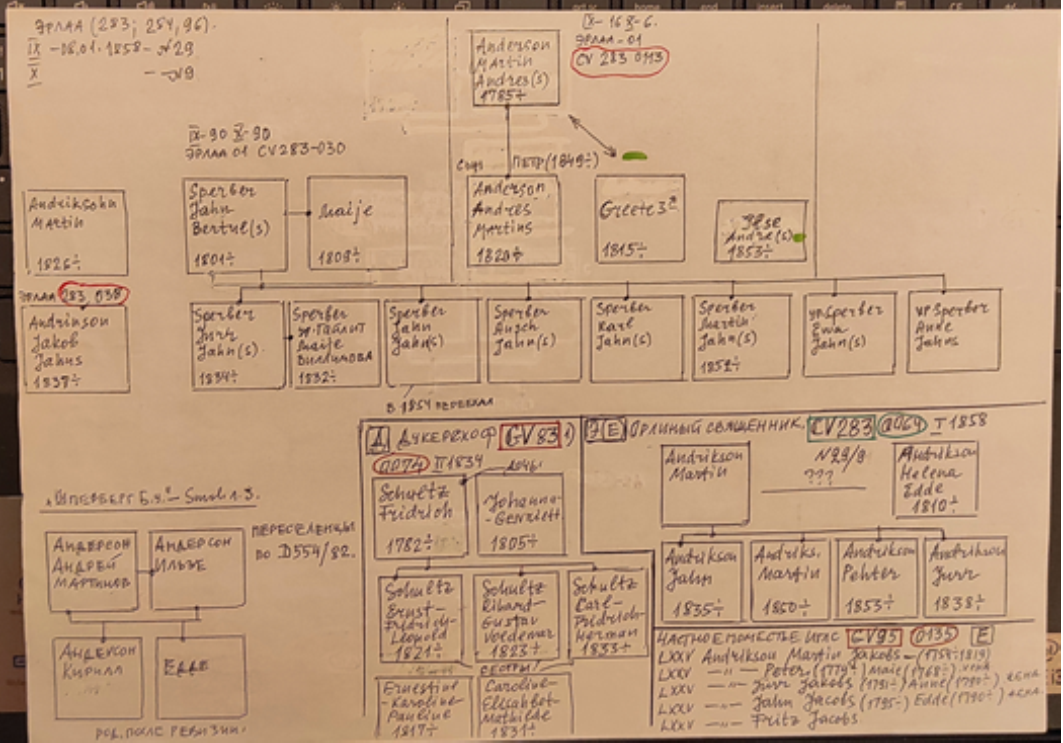 ЭРЛАА (283; 284, 96).
IX -08.01.1858- №29
X - - №9
IX-16 X-6.
ЭРЛАА-01
CV 283 0113
Anderson
Martin
Andres(s)
1785÷
IX-90 X-90
ЭРЛАА 01 CV283-030
ПЕТР (1849÷)
Andriksohn
Martin
1826÷
Sperber
Jahn
Bertul(s)
1801÷
Maije
1809÷
Anderson
Andres
Martins
1820÷
Greete
1815÷
Ilse
Andre(s)
1853÷
ЭРЛАА 283, 038
Andrinson
Jakob
Jahns
1837÷
Sperber
Jurr
Jahn(s)
1834÷
Sperber
Maije
1832÷
Sperber
Jahn
Jahn(s)
Sperber
Jahn(s)
Sperber
Karl
Jahn(s)
Sperber
Martin
Jahn(s)
1852÷
Sperber
Ewa
Jahn(s)
Sperber
Ande
Jahns
В 1854 ПЕРЕЕХАЛ
Д ДУКЕРСХОФ GV 83
0074 II 1834
Е ОРЛИНЫЙ СВЯЩЕННИК. CV283 0064 I 1858
N29/9
???
Schultz
Fridrich
1782÷
Johanna-
1805÷
Andrikson
Martin
Andrikson
Helena
Edde
1810÷
Smol 1-3.
АНДЕРСОН
АНДРЕЙ
МАРТИНОВ
АНДЕРСОН
ИЛЬЗЕ
ПЕРЕСЕЛЕНЦЫ
ПО D554/82.
АНДЕРСОН
КИРИЛЛ
ЕДДЕ
РОД. ПОСЛЕ РЕВИЗИИ.
Schultz
Ernst-
Fridrich-
Leopold
1821÷
Schultz
Rihard-
Gustav
Voldemar
1823÷
Schultz
Carl-
Fridrich-
Herman
1833÷
СЕСТРЫ
Ernestine
-Karoline-
Pauline
1817÷
Caroline-
Elisabet-
Mathilde
1831÷
Andrikson
Jahn
1835÷
Andriks.
Martin
1850÷
Andrikson
Pehter
1853÷
Andrikson
Jurr
1838÷
ЧАСТНОЕ ПОМЕСТЬЕ GV95 0135 E
LXXV Andrikson Martin Jakobs-
LXXV -"- Peter (1779÷) Maie (1768÷) жена
LXXV -"- Jurr Jakobs (1791÷) Anne (1790÷) жена
LXXV -"- Jahn Jacobs (1795÷) Edde (1790÷) жена
LXXV -"- Fritz Jacobs